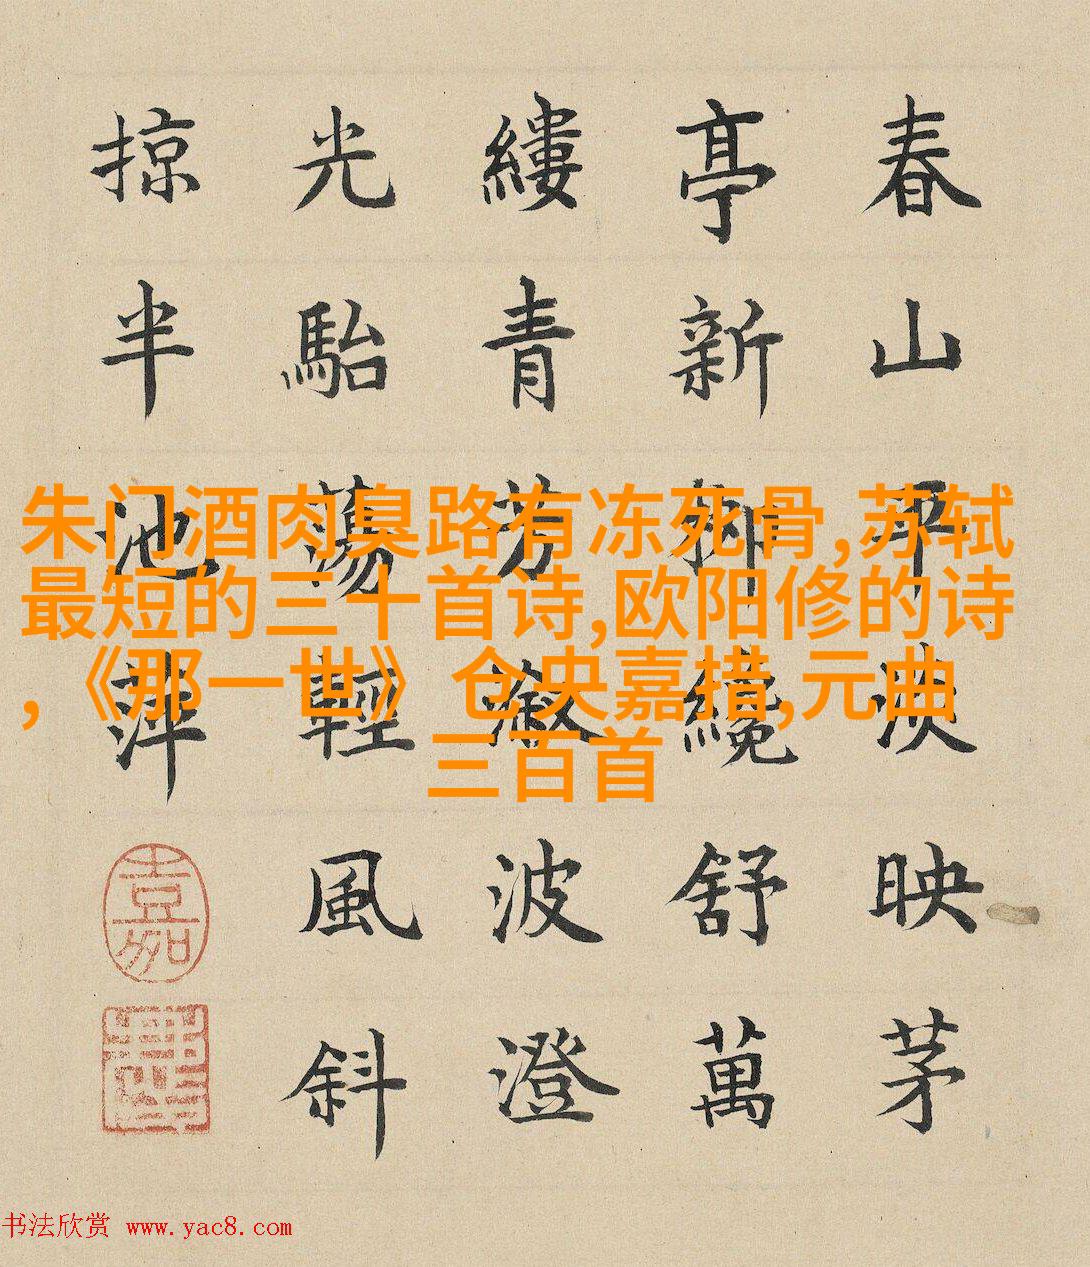 春山平映茅
亭新柳纔舒萬
縷青芳波澄
光駘蕩輕風斜
掠半池萍
嘉
朱门酒肉臭路有冻死骨,苏轼
最短的三十首诗,欧阳修的诗
,《那一世》仓央嘉措,元曲
三百首
书法欣赏 www.yac8.com